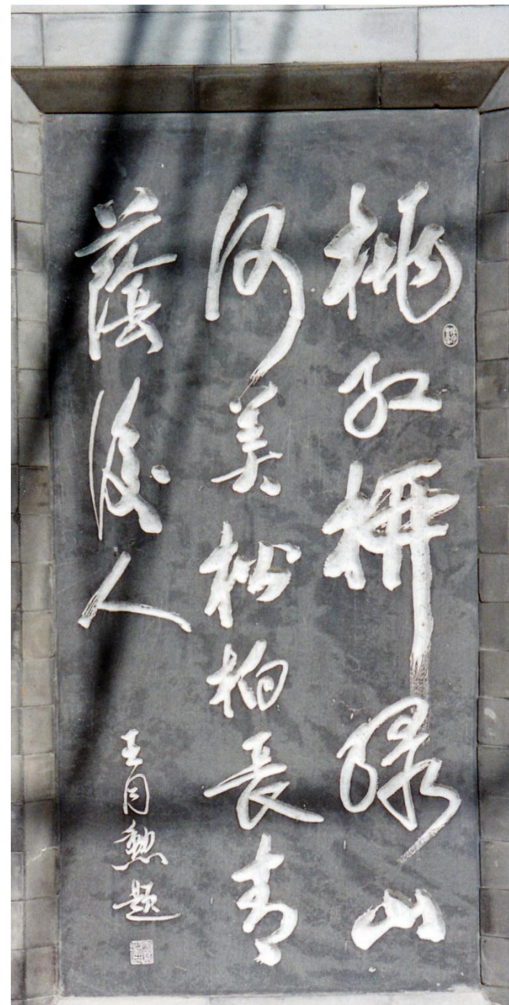 桃红柳绿山
河美松柏长青
荫后人
王月勲题